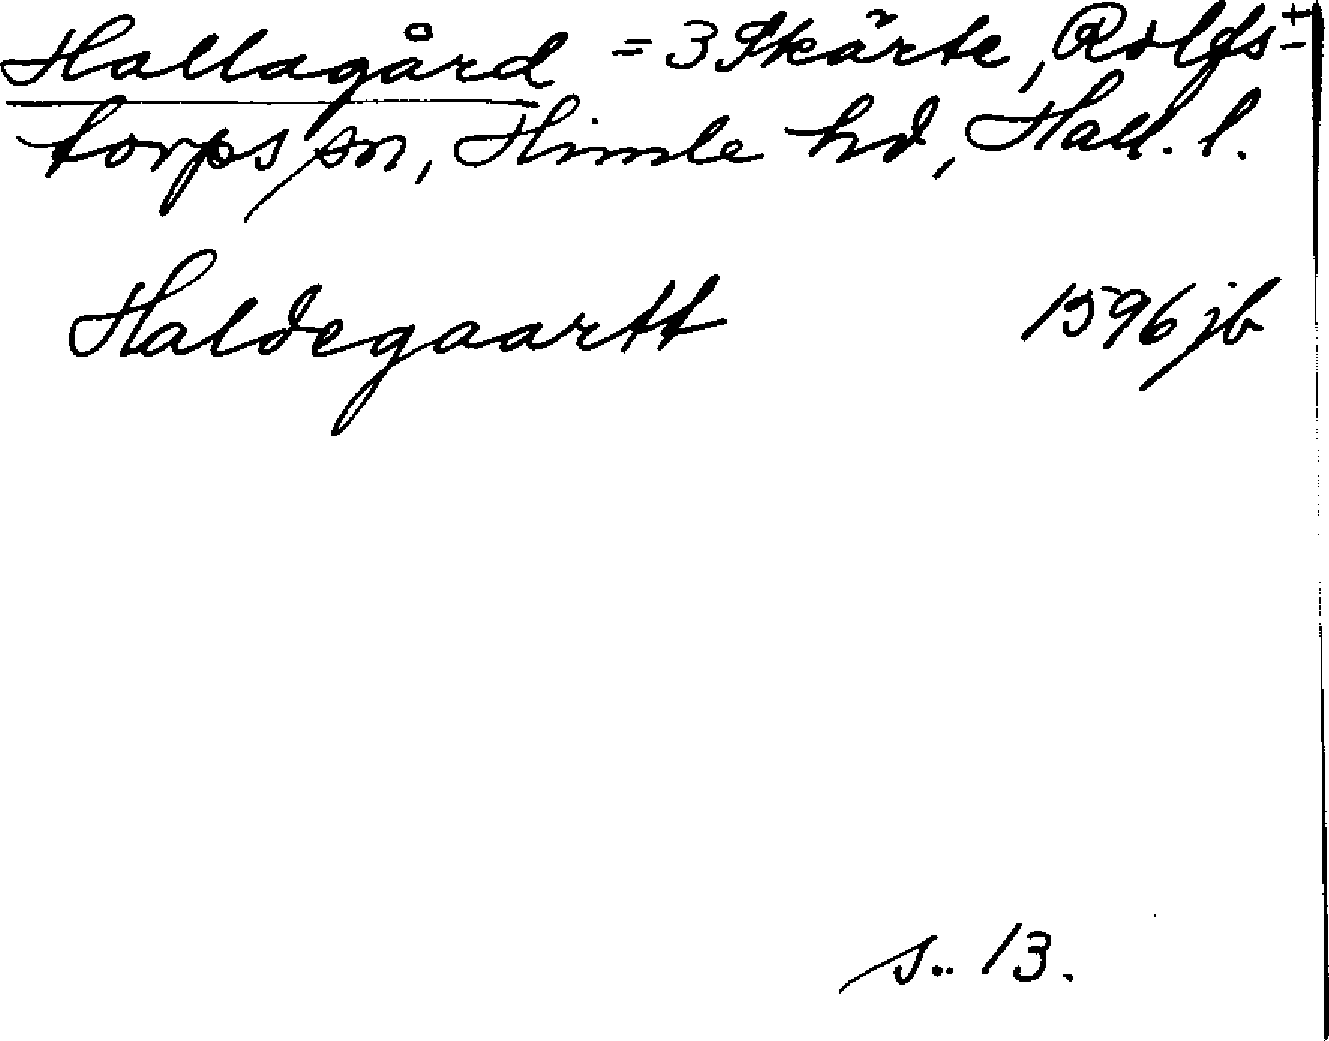 Hallagård = 3 Skärte, Rolfs-
torps sn, Himle hd, Hall. l.
Haldegaartt 1596 jb
s. 13.